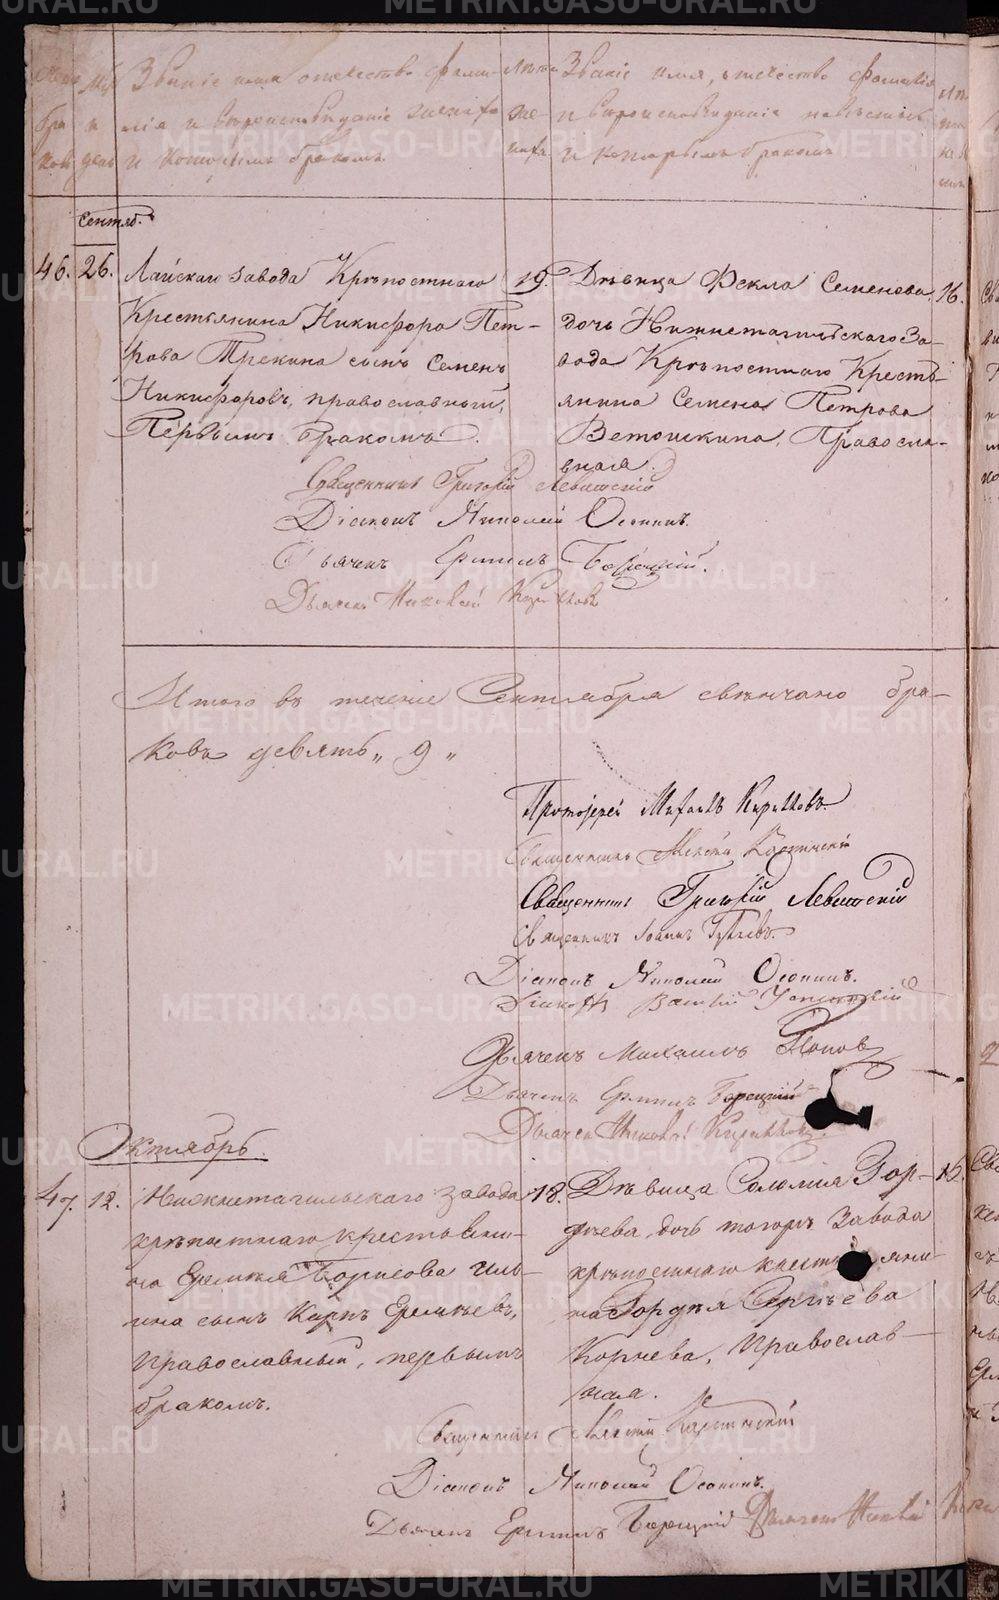 Звание имя отечество фами-
лия и вероисповедание жениха
и которымъ бракомъ
Лета
же
ниха
Звание имя, отечество фамилия
и вероисповедание невесты
и которымъ бракомъ
Сентяб.
46. 26. Лайскаго завода Крѣпостнаго
Крестьянина Никифора Пет-
рова Трекина сынъ Семенъ
Никифоровъ, православный,
Первымъ бракомъ.
19.
Дѣвица Фекла Семенова,
дочь Нижнетагильскаго За-
вода Крѣпостнаго Кресть-
янина Семена Петрова
Ветошкина, Правосла-
вная.
16.
Священникъ Григорій Левитскій
Діаконъ Николай Осонинъ.
Дьячекъ Ермилъ Борецкій.
Дьячекъ Николай
Итого въ течение Сентября свѣнчано бра-
ковъ девять „ 9 „
Протоіерей Михаилъ
Священникъ Алексій
Священникъ Григорій Левитскій
Священникъ Іоаннъ
Діаконъ Николай Осонинъ.
Діаконъ Василій
Дьячекъ Михаилъ Поповъ
Дьячекъ Ермилъ Борецкій
Дьячекъ Николай
Октябрь.
47. 12. Нижнетагильскаго завода
крѣпостнаго крестьяни-
на Еремѣя Борисова Иль-
ина сынъ Карпъ Еремѣевъ,
православный, первымъ
бракомъ.
18.
Дѣвица Соломія Гор-
дѣева, дочь тогожъ Завода
крѣпостнаго крестьяни-
на Гордѣя Сергѣева
Корнева, Православ-
ная.
16.
Священникъ Алексій
Діаконъ Николай Осонинъ.
Дьячекъ Ермилъ Борецкій Дьячекъ Николай
METRIKI.GASO-URAL.RU